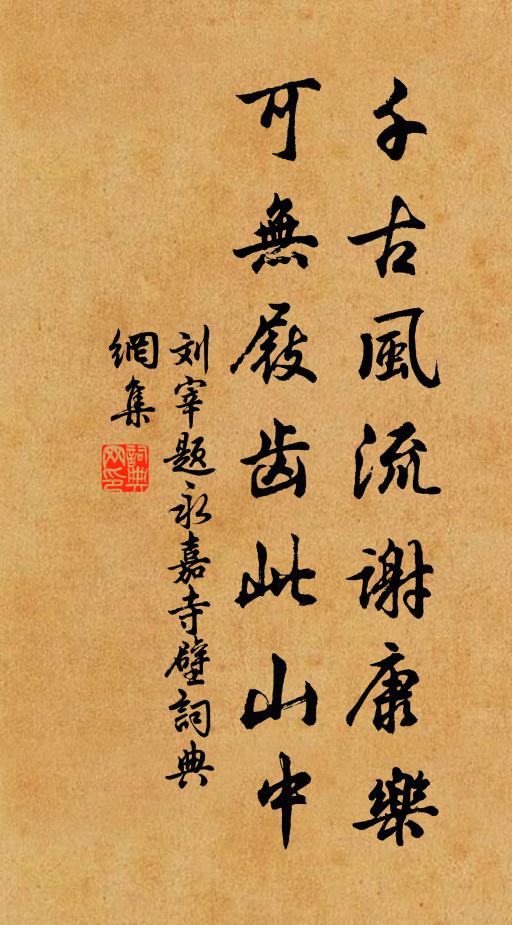 千古風流謝康樂
可無屐齿此山中
刘宰题永嘉寺壁詞典
網集
詞典
网印